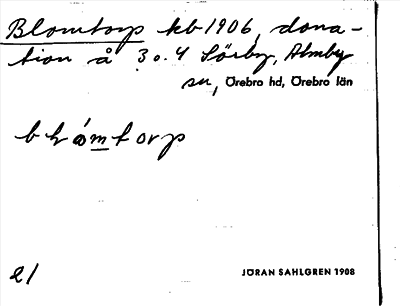 Blomtorp kb 1906, dona-
tion å 3 o. 4 Sörby, Almby
sn, Örebro hd, Örebro län
blómtorp
JÖRAN SAHLGREN 1908